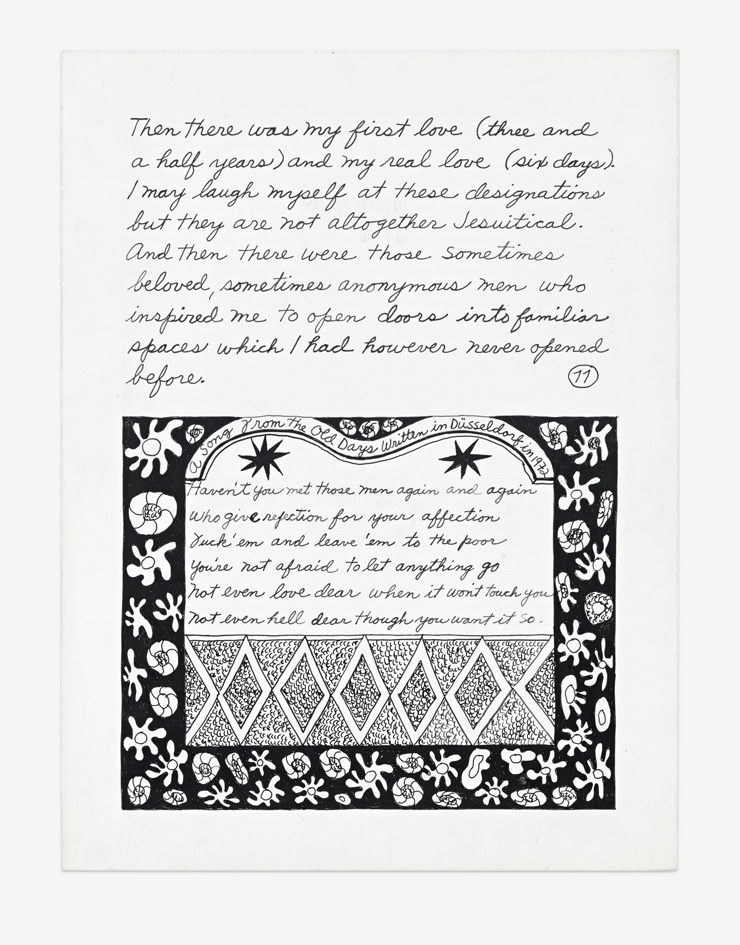 Then there was my first love (three and
a half years) and my real love (six days).
I may laugh myself at these designations
but they are not altogether Jesuitical.
And then there were those sometimes
beloved, sometimes anonymous men who
inspired me to open doors into familiar
spaces which I had however never opened
before.
11
A Song From the Old Days Written in Düsseldorf in 1972
Haven't you met those men again and again
Who give rejection for your affection
Fuck 'em and leave 'em to the poor
You're not afraid to let anything go
Not even love dear when it won't touch you
Not even hell dear though you want it so-